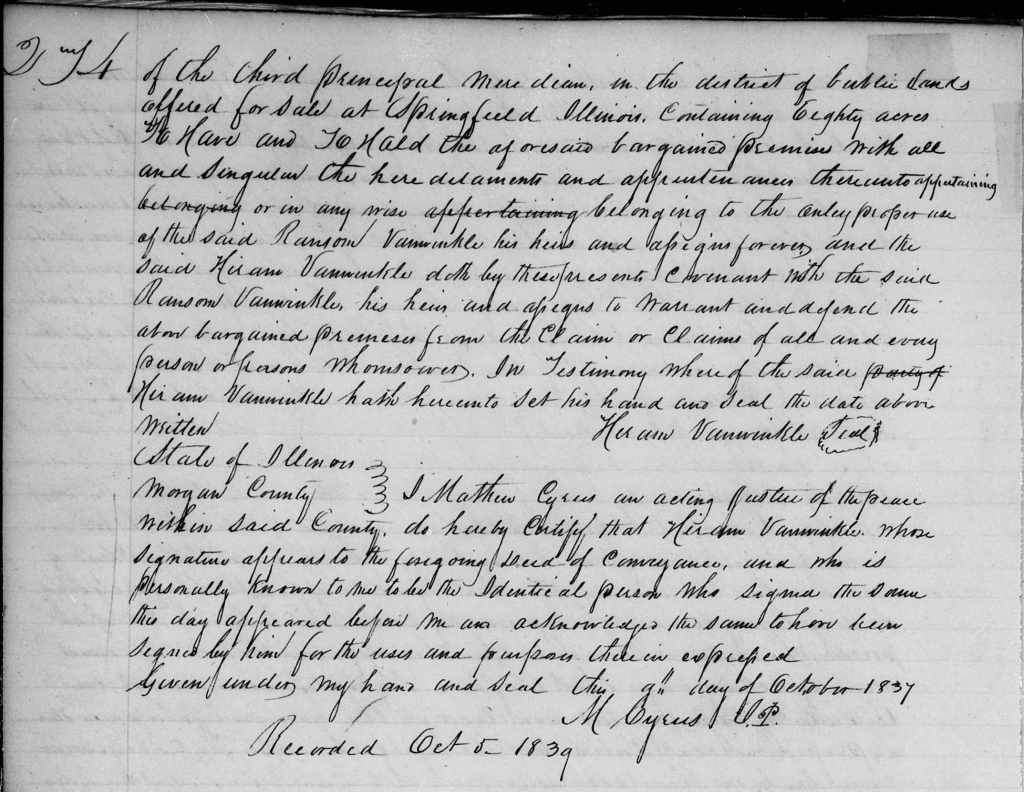 274
of the third principal Meredian, in the district of public Lands
offered for sale at Springfield Illinois. Containing Eighty acres
To Have and To Hald the aforesaid bargained premise with all
and singular the heredetaments and appurtenances thereunto appertaining
belonging or in any wise appertaining belonging to the onley proper use
of the said Ransom Vanwinkle his heirs and assigns forever, and the
said Hiram Vanwinkle doth by these presents Covenant with the said
Ransom Vanwinkle, his heirs and assigns to Warrant and defend the
above bargained premeses from the Claim or Claims of all and every
person or persons whomsoever. In Testimony where of the said party of
Hiram Vanwinkle hath hereunto set his hand and seal the date above
Written Hiram Vanwinkle Seal
State of Illinois
Morgan County } I Mathew Cyrus an acting Justice of the peace
within said County, do hereby Certify that Hiram Vanwinkle. whose
signature appears to the foregoing Deed of Conveyance, and who is
personally Known to me to be the Identical person who signed the same
this day appeared before me and acknowledged the same to have been
signed by him for the uses and purposes therein expressed
Given under my hand and seal this 9th day of October 1837
M Cyrus J.P.
Recorded Oct 5 - 1839